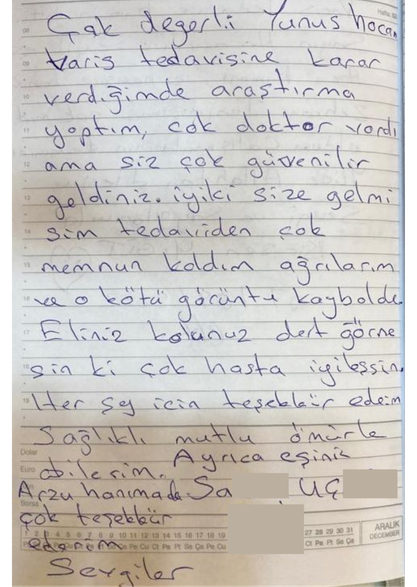 Çok değerli Yunus hocam
Varis tedavisine karar
verdiğimde araştırma
yaptım, cok doktor vardı
ama siz çok güvenilir
geldiniz. iyiki size gelmi
şim tedaviden çok
memnun kaldım ağrılarım
ve o kötü görüntü kayboldu
Eliniz kolunuz dert görme
sin ki çok hasta iyileşsin.
Her şey icin teşekkür ederim
Sağlıklı mutlu ömürle
dilerim. Ayrıca eşiniz
Arzu hanımada Sa UÇ
çok teşekkür
ederim
Sevgiler
Dolar
Euro
1 2 3 4 5 6 7 8 9 10 11 12 13 14 15 16 17 18 19 27 28 29 30 31
Pe Cu Ct Pa Pt Sa Ça Pe Cu Ct Pa Pt Sa Ça
ARALIK
DECEMBER